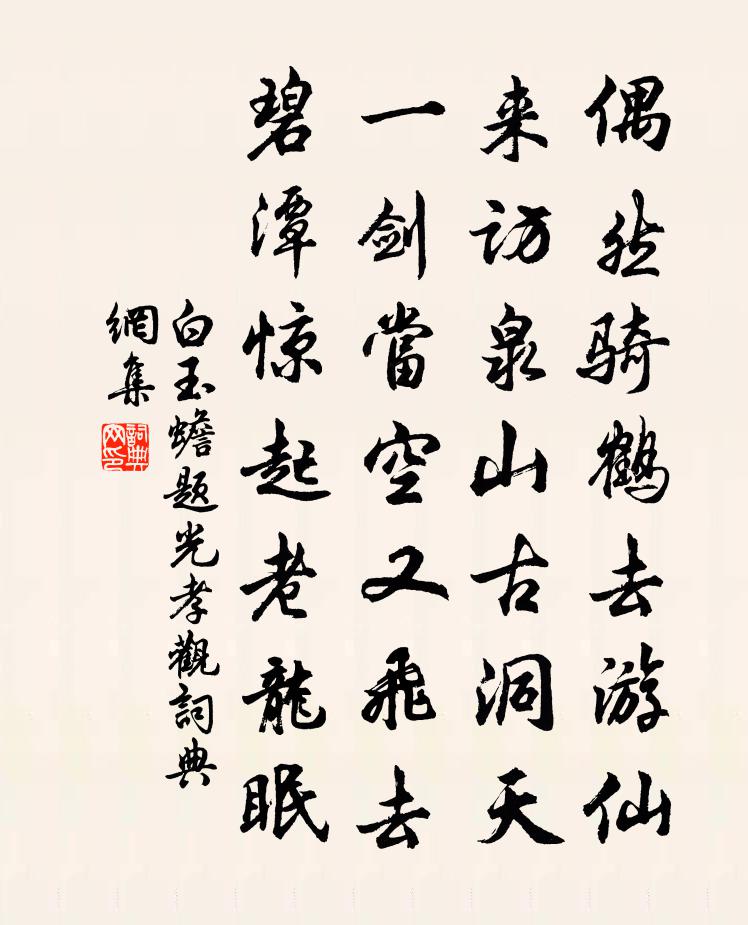 偶然骑鹤去游仙
来访泉山古洞天
一剑當空又飛去
碧潭惊起老龍眠
白玉蟾题光孝觀詞典
網集
詞典
网印